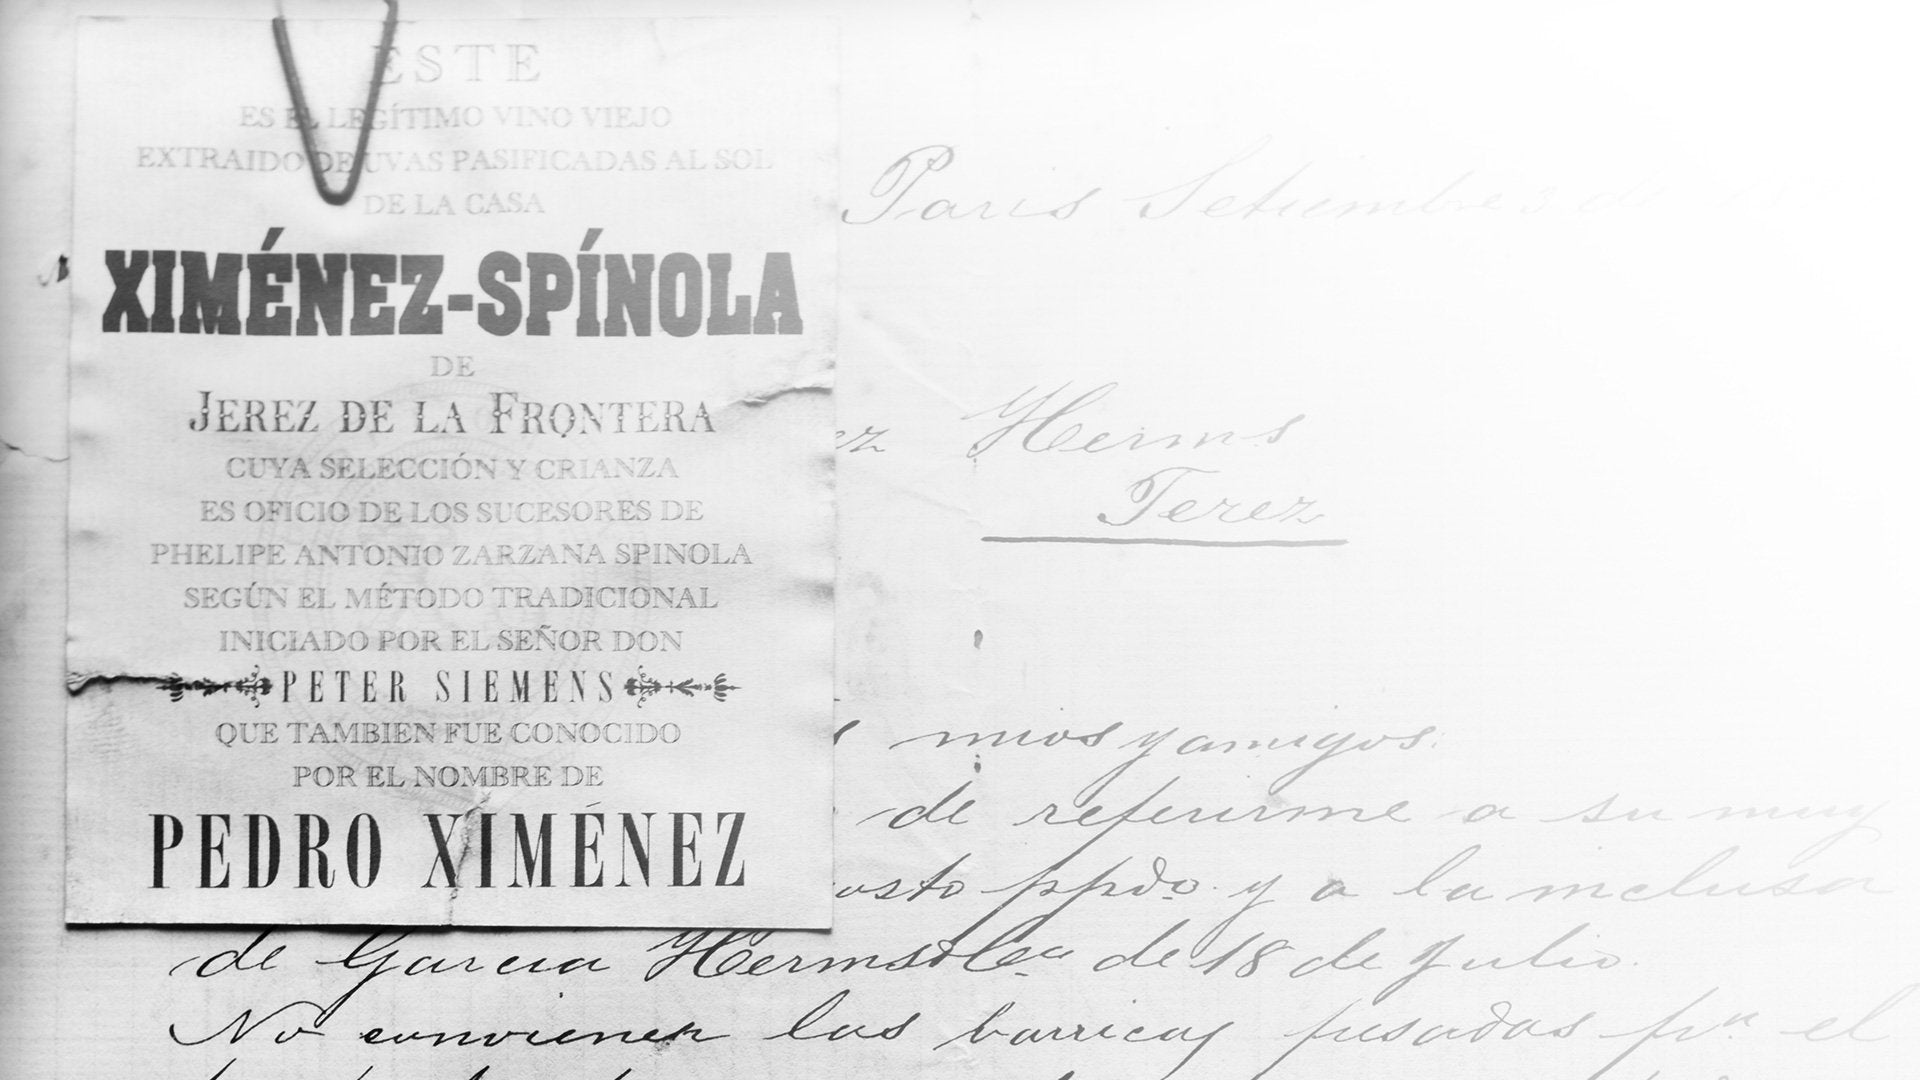 ESTE
ES EL LEGÍTIMO VINO VIEJO
EXTRAIDO DE UVAS PASIFICADAS AL SOL
DE LA CASA
XIMÉNEZ-SPÍNOLA
DE
JEREZ DE LA FRONTERA
CUYA SELECCIÓN Y CRIANZA
ES OFICIO DE LOS SUCESORES DE
PHELIPE ANTONIO ZARZANA SPINOLA
SEGÚN EL MÉTODO TRADICIONAL
INICIADO POR EL SEÑOR DON
PETER SIEMENS
QUE TAMBIEN FUE CONOCIDO
POR EL NOMBRE DE
PEDRO XIMÉNEZ
Paris Setiembre 3 de
ez Herms
Jerez
mios y amigos:
de referirme a su muy
osto ppdo. y a la inclusa
de Garcia Herms de 18 de Julio.
No convienen las barricas pesadas pr. el